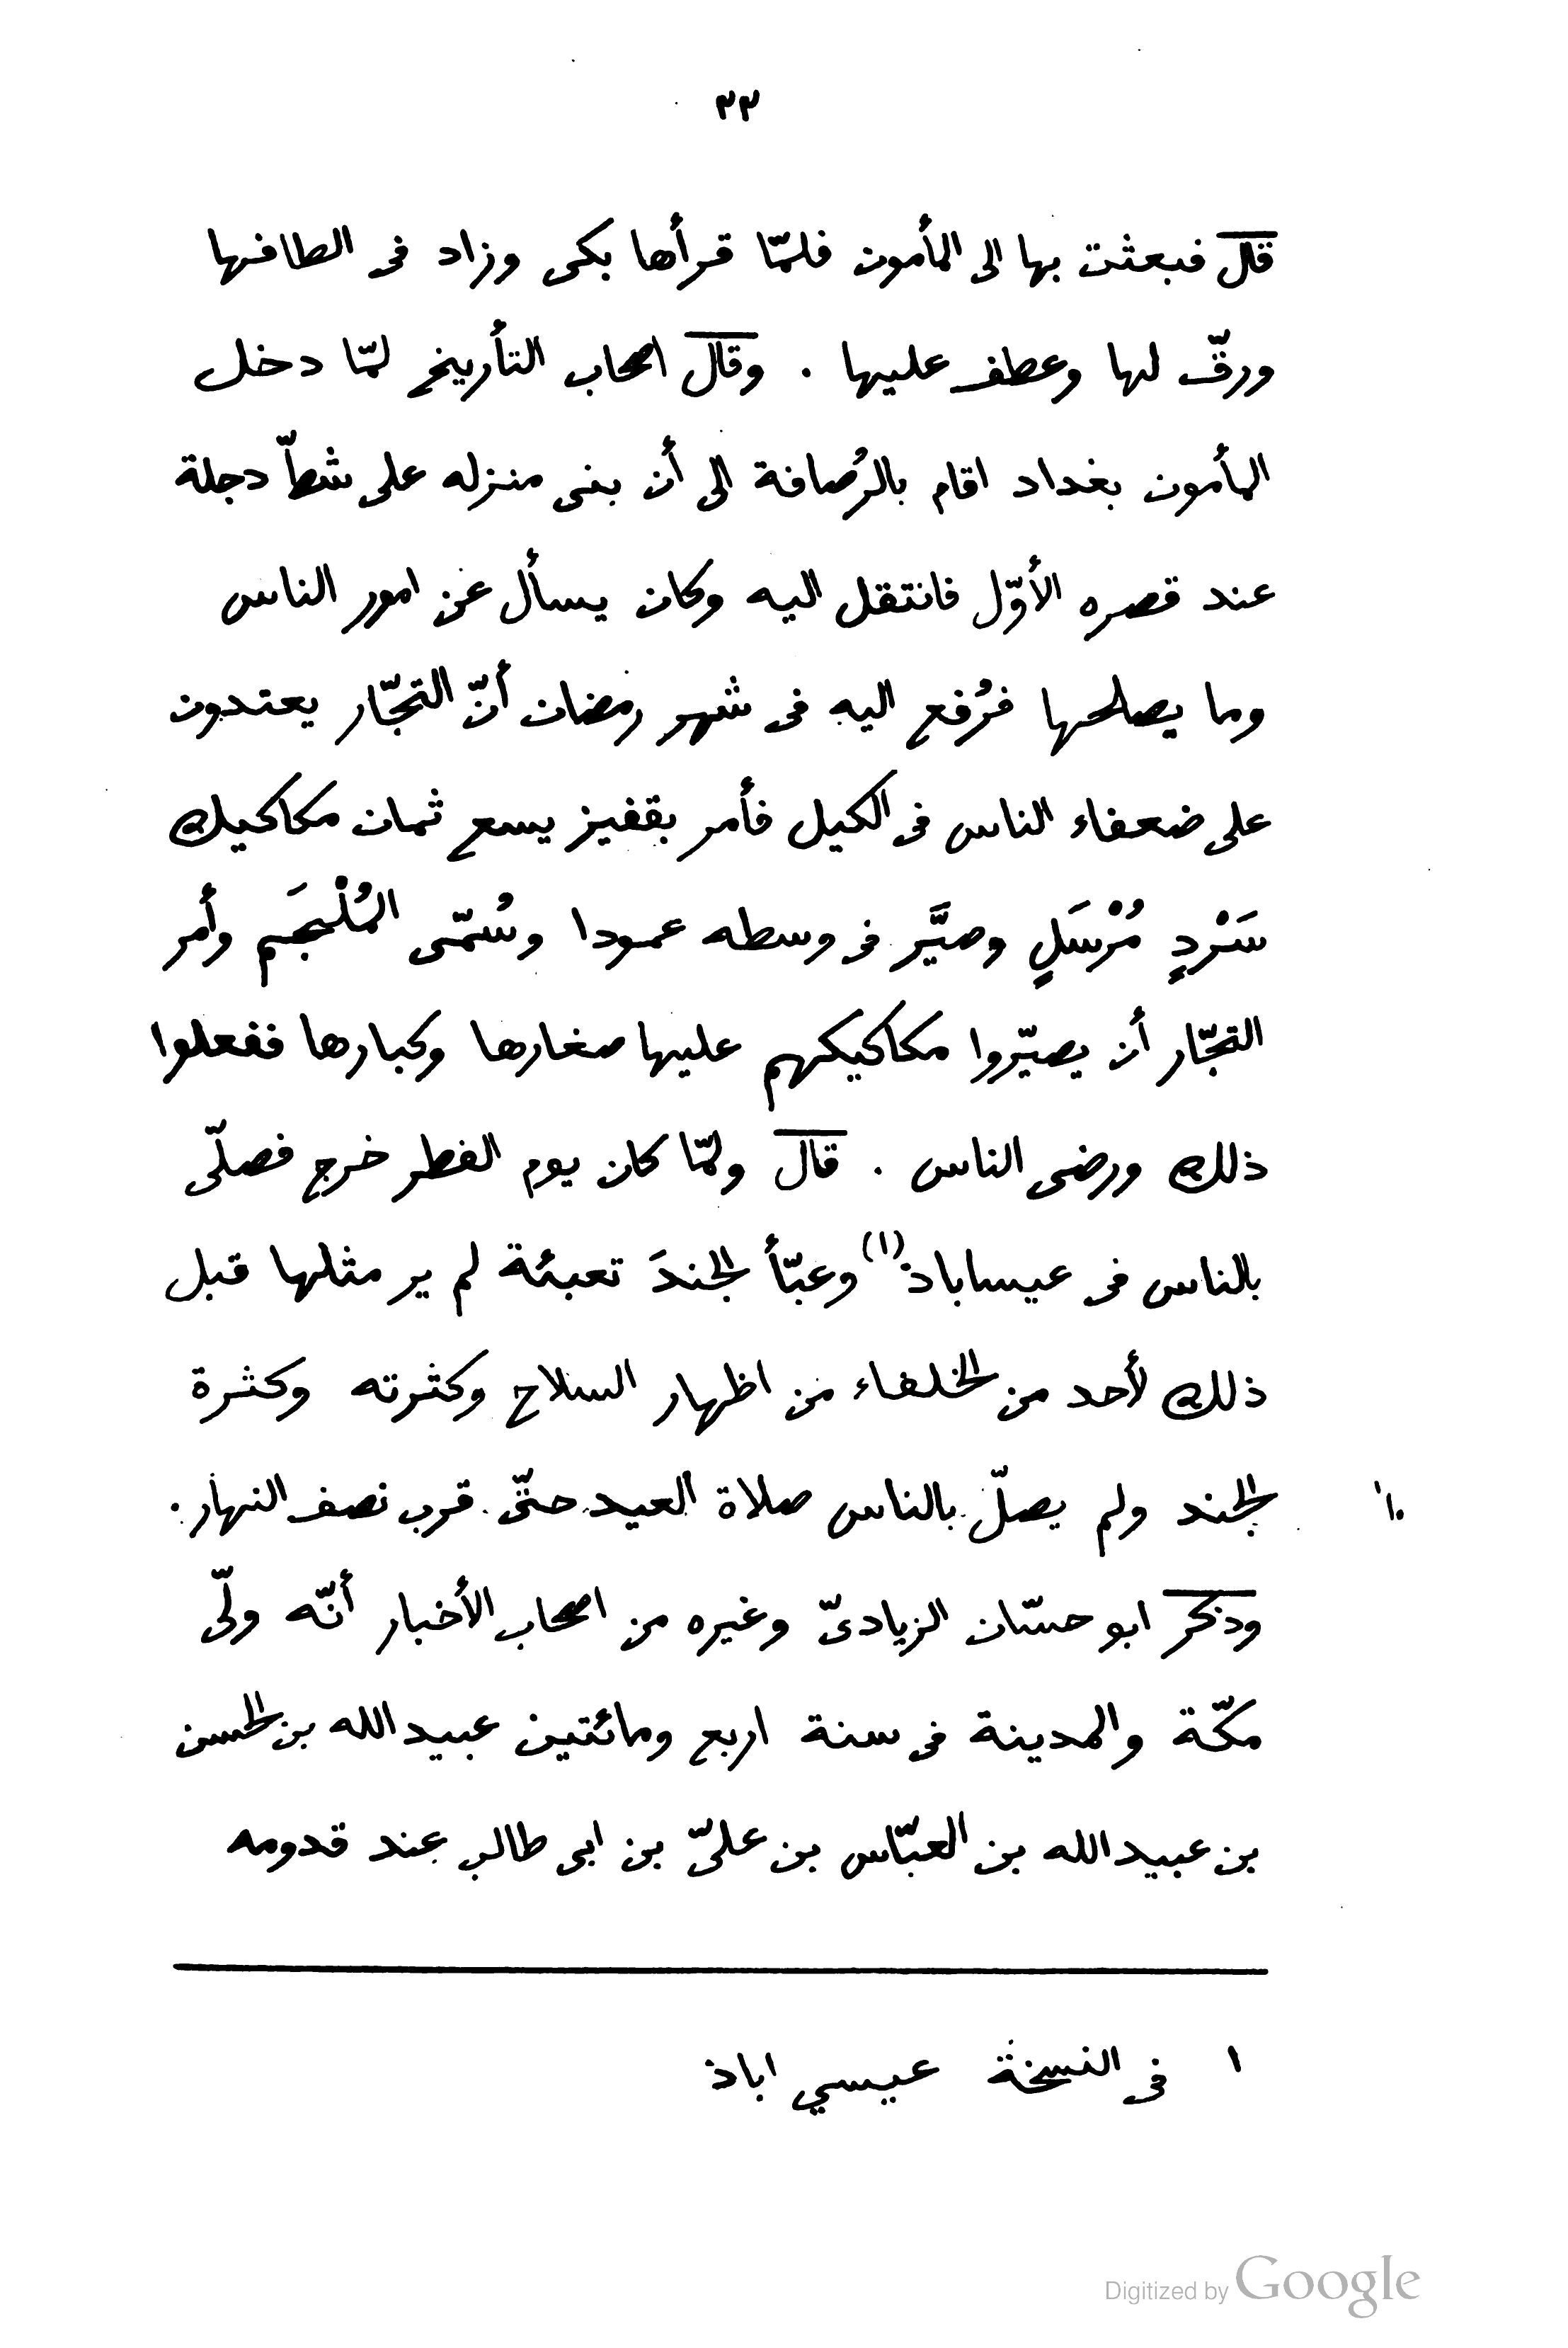 ٢٢
قال فبعثت بها الى المأمون فلمّا قرأها بكى وزاد فى الطافها
ورقّ لها وعطف عليها . وقال اصحاب التأريخ لمّا دخل
المأمون بغداد اقام بالرُصافة الى أن بنى منزله على شطّ دجلة
عند قصره الأوّل فانتقل اليه وكان يسأل عن امور الناس
وما يصلحها فرُفع اليه فى شهر رمضان أنّ التجّار يعتدون
على ضعفاء الناس فى الكيل فأمر بقفيز يسع ثمان مكاكيك
سَرْدٍ مُرْسَلٍ وصيَّر فى وسطه عمودا وسُمّى المُلْجَم وأمر
التجّار أن يصيّروا مكاكيكهم عليها صغارها وكبارها ففعلوا
ذلك ورضى الناس . قال ولمّا كان يوم الفطر خرج فصلّى
بالناس فى عيساباذ (١) وعبّأ الجندَ تعبئة لم ير مثلها قبل
ذلك لأحد من الخلفاء من اظهار السلاح وكثرته وكثرة
الجند ولم يصلّ بالناس صلاة العيد حتّى قرب نصف النهار . ١٠
وذكر ابو حسّان الزيادىّ وغيره من اصحاب الأخبار أنّه ولّى
مكّة والمدينة فى سنة اربع ومائتين عبيد الله بن الحسن
بن عبيد الله بن العبّاس بن علىّ بن ابى طالب عند قدومه
١ فى النسخة عيسي اباذ
Digitized by Google